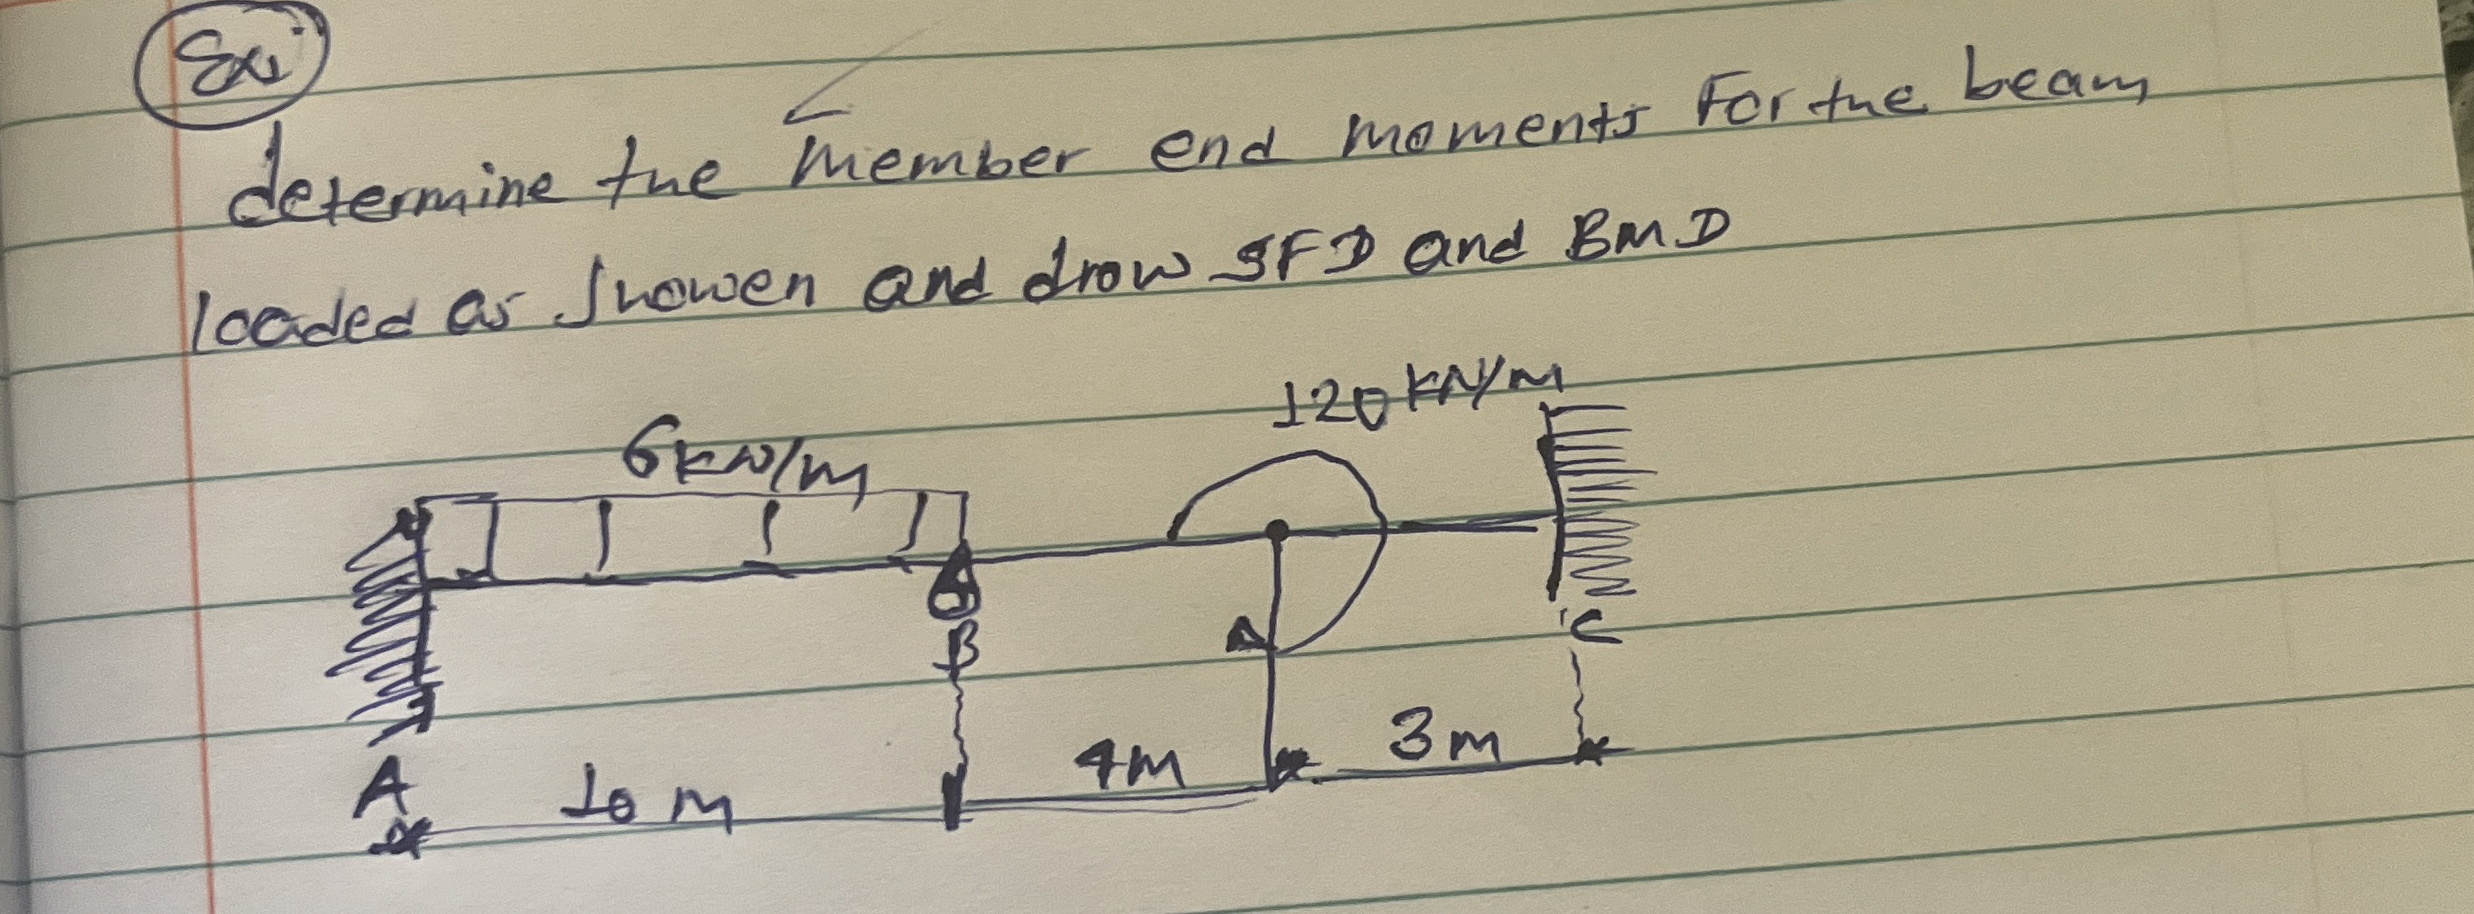 Ex:
determine the member end moments For the beam
loaded as showen and drow SFD and BMD
120 KN/M
6KN/m
C
B
3m
4M
A
10 M